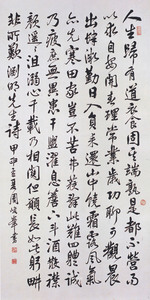 人生歸有道衣食固其端孰是都不營而
以求自安開春理常業歲功聊可觀晨
出肆微勤日入負耒還山中饒霜露風氣
亦先寒田家豈不苦弗獲辭此難四體誠
乃疲庶無異患干盥濯息簷下斗酒散襟
顏遙遙沮溺心千載乃相關但願長如此躬耕
非所歎淵明先生詩甲午夏周書